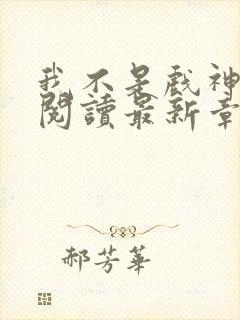 我不是戲神
閱讀最新章
郝芳華